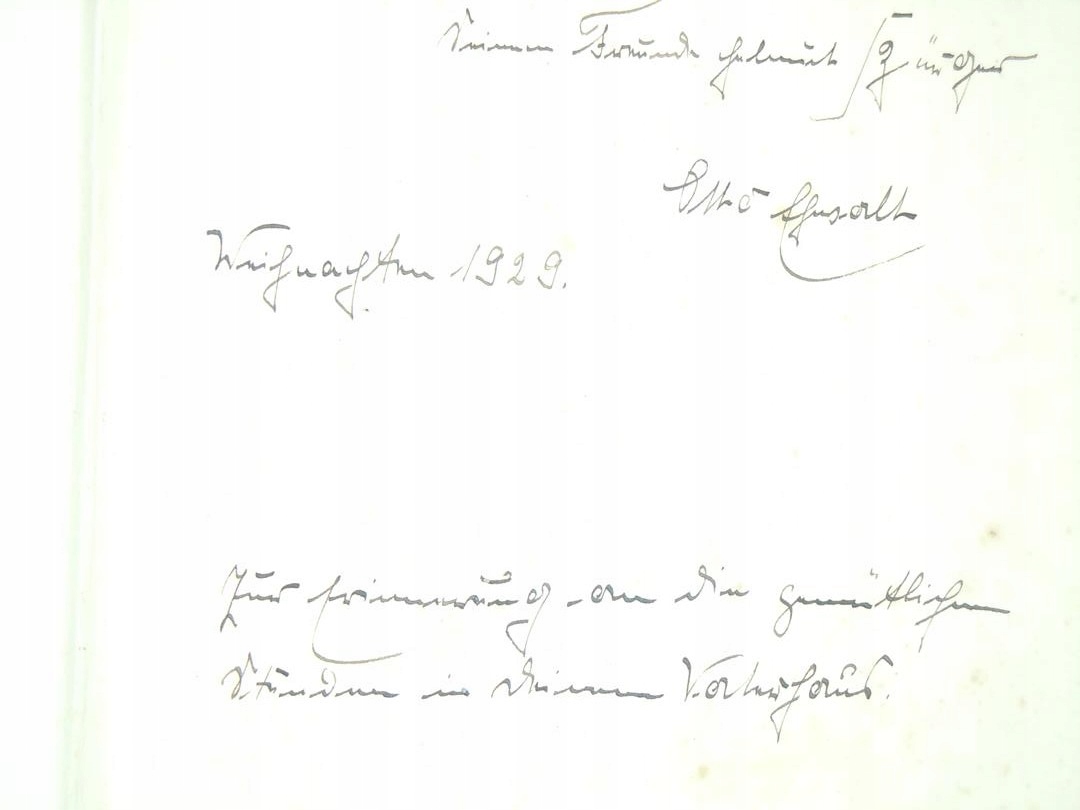 Seinem Freunde Helmut
Otto Ehwalt
Weihnachten 1929.
Zur Erinnerung an die gemütlichen
Stunden in deinem Vaterhaus.